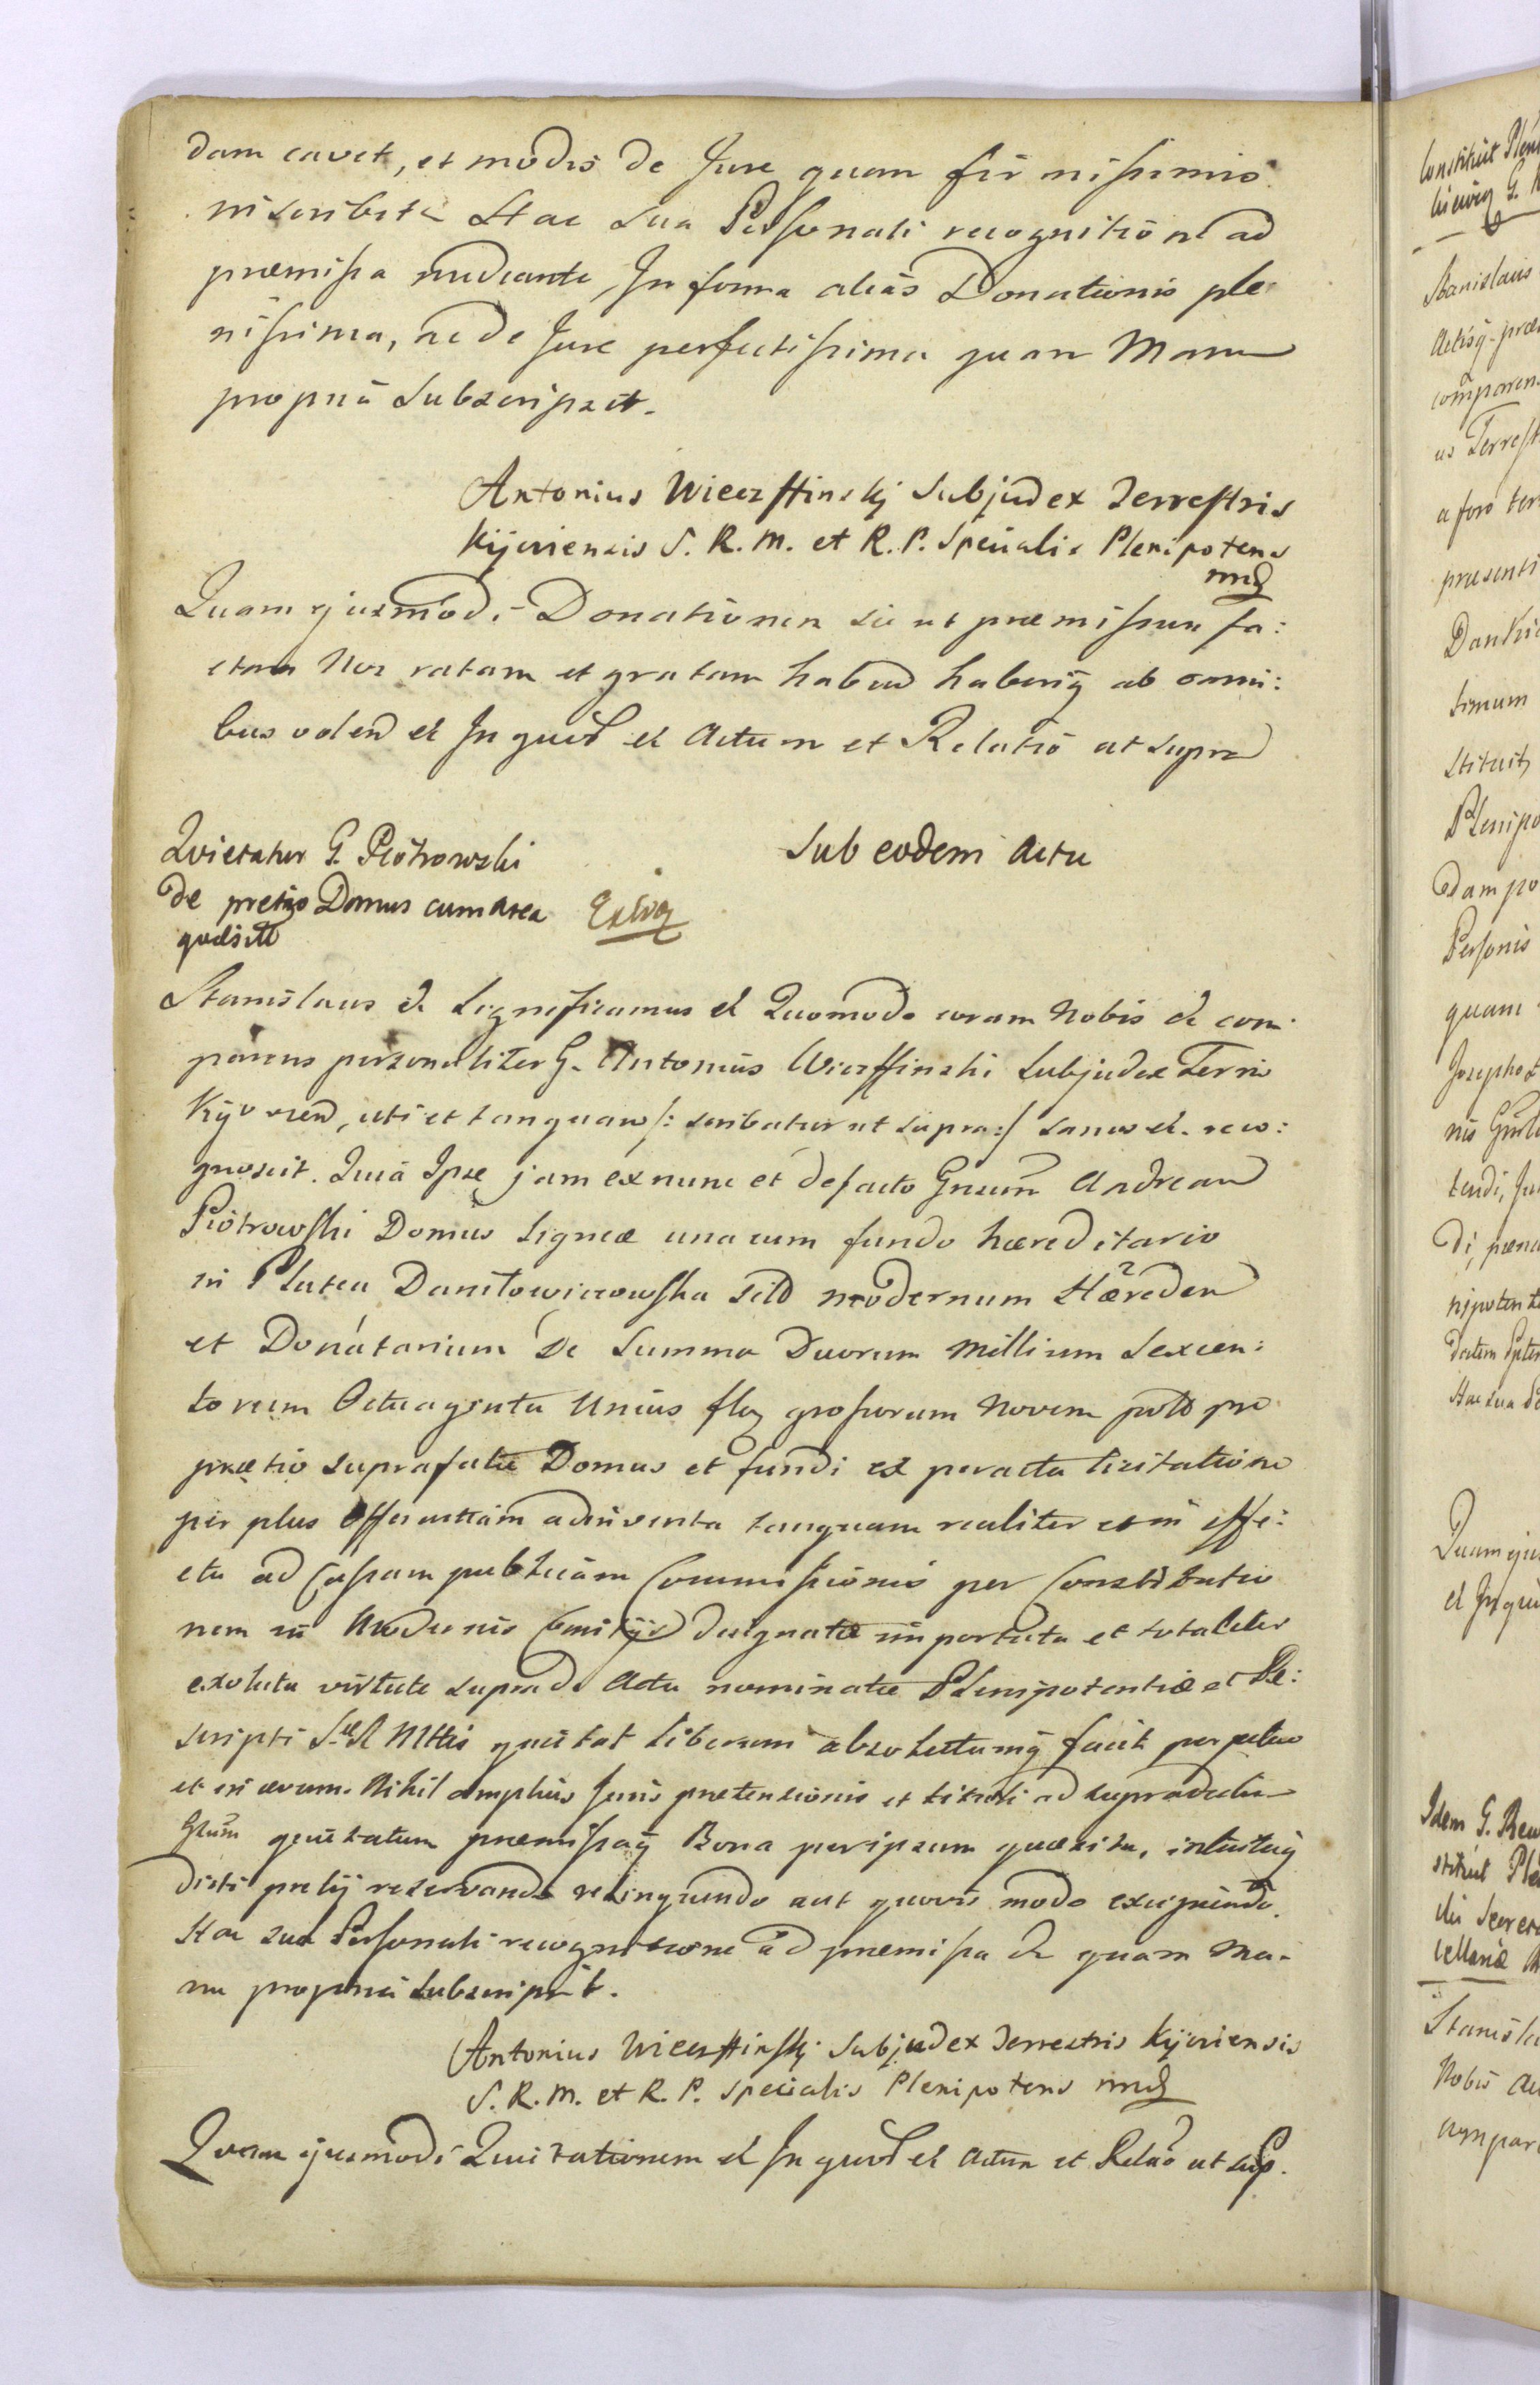 dam cavet, et modis de Jure quam firmissimis
inscribit Hac Sua Personali recognitione ad
præmissa mediante, In forma alias Donationis ple
nissima, ac de Jure perfectissima quam Manu
propriâ Subscripsit.
Antonius Wierzffinskj Subjudex Terrestris
Kijoviensis S. R. M. et R. P. Specialis Plenipotens
mp
Quam ejusmodi Donationem sic ut præmissum fa:
ctam Nos ratam et gratam habend haberiq ab omni:
bus volen et In quor et Actum et Relatio ut supra
Qvietatur G. Piotrowski
de pretio Domus cum Area
quæsitæ
Sub eodem Actu
Stanislaus & Significamus & Quomodo coram Nobis & com
parens personaliter G. Antonius Wierzffinski Subjudex Terris
Kijovien, uti et tanquam /: scribatur ut supra :/ sanus &. reco:
gnoscit. Quia Ipse jam ex nunc et de facto Gnsum Andream
Piotrowski Domus ligneæ una cum fundo hæreditario
in Platea Daniłowiczowska sitæ modernum Hæredem
et Donatarium de Summa Duorum Millium Sexcen:
torum Octuaginta Unius flor grossorum Novem polo pro
prætio suprafatæ Domus et fundi ex peracta licitatione
per plus Offerentiam adinventa tanquam realiter cum effe:
ctu ad Cassam publicam Commissionis per Constitutio
nem in Modernis Comitijs designatæ importata et totaliter
exoluta virtute supra de Actu nominatæ Plenipotentiæ et Re:
scripti S. R. Mttis quietat liberum absolutumq facit perpetuo
et in ævum. Nihil amplius Juris prætensionis et tituli ad supradictum
Gsum quietatum præmissaq Bona per ipsum quæsita, intuituq
dicti pretij reservando relinquendo aut quovis modo excipiendo.
Hac sua Personali recognitione ad præmissa & quam Ma-
nu propria subscripsit.
Antonius Wierzffinskj Subjudex Terrestris Kijoviensis
S. R. M. et R. P. Specialis Plenipotens mp
Quam ejusmodi Quietationem & In quor & Actum et Relatio ut sup.